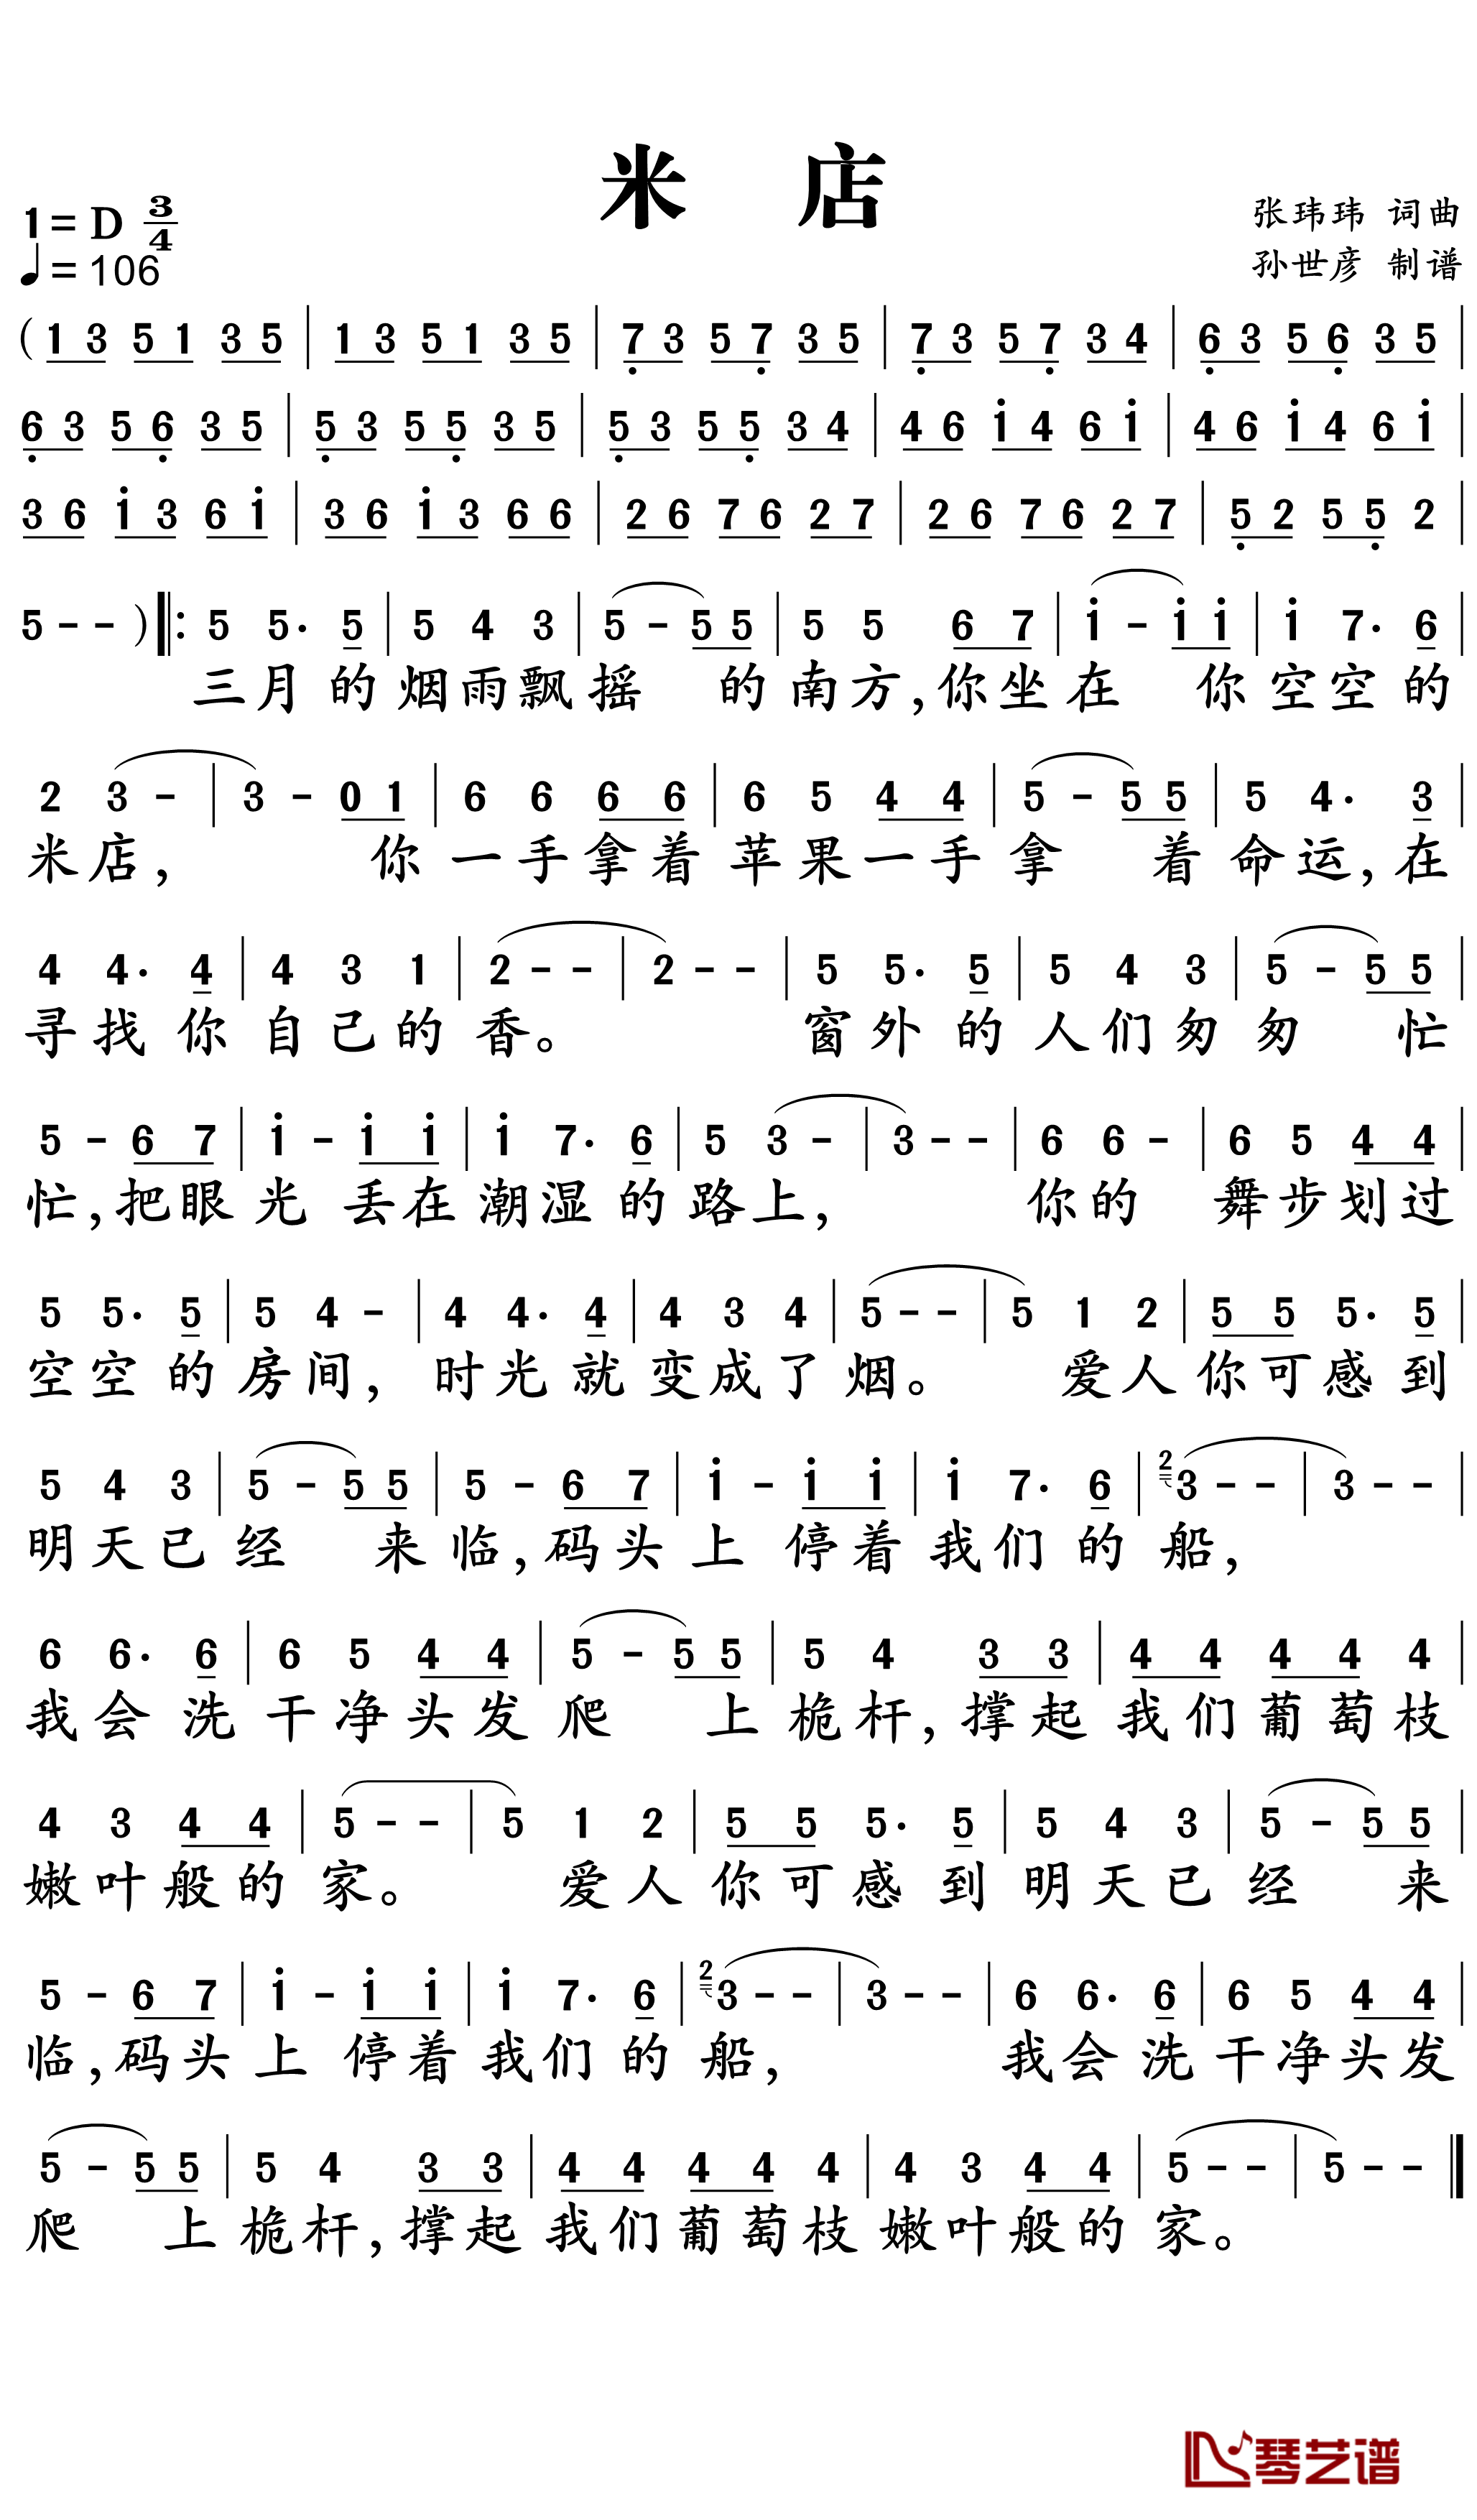 米 店
1=D 3/4
♩=106
张玮玮 词曲
孙世彦 制谱
(1 3 5 1 3 5 | 1 3 5 1 3 5 | 7̣ 3 5 7̣ 3 5 | 7̣ 3 5 7̣ 3 4 | 6̣ 3 5 6̣ 3 5 |
6̣ 3 5 6̣ 3 5 | 5̣ 3 5 5̣ 3 5 | 5̣ 3 5 5̣ 3 4 | 4 6 i 4 6 i | 4 6 i 4 6 i |
3 6 i 3 6 i | 3 6 i 3 6 6 | 2 6 7 6 2 7 | 2 6 7 6 2 7 | 5̣ 2 5 5̣ 2 |
5 - - ) ‖: 5 5. 5 | 5 4 3 | 5 - 5 5 | 5 5 6 7 | i - i i | i 7. 6 |
三月的烟雨飘摇 的南方,你坐在 你空空的
2 3 - | 3 - 0 1 | 6 6 6 6 | 6 5 4 4 | 5 - 5 5 | 5 4. 3 |
米店, 你一手拿着苹果一手拿 着命运,在
4 4. 4 | 4 3 1 | 2 - - | 2 - - | 5 5. 5 | 5 4 3 | 5 - 5 5 |
寻找你自己的香。 窗外的人们匆匆 忙
5 - 6 7 | i - i i | i 7. 6 | 5 3 - | 3 - - | 6 6 - | 6 5 4 4 |
忙,把眼光 丢在潮湿的路上, 你的 舞步划过
5 5. 5 | 5 4 - | 4 4. 4 | 4 3 4 | 5 - - | 5 1 2 | 5 5 5. 5 |
空空的房间, 时光就变成了烟。 爱人你可感到
5 4 3 | 5 - 5 5 | 5 - 6 7 | i - i i | i 7. 6 | 2 3 - - | 3 - - |
明天已经 来临,码头上 停着我们的船,
6 6. 6 | 6 5 4 4 | 5 - 5 5 | 5 4 3 3 | 4 4 4 4 4 |
我会洗干净头发爬 上桅杆,撑起我们葡萄枝
4 3 4 4 | 5 - - | 5 1 2 | 5 5 5. 5 | 5 4 3 | 5 - 5 5 |
嫩叶般的家。 爱人你可感到明天已经 来
5 - 6 7 | i - i i | i 7. 6 | 2 3 - - | 3 - - | 6 6. 6 | 6 5 4 4 |
临,码头上 停着我们的船, 我会洗干净头发
5 - 5 5 | 5 4 3 3 | 4 4 4 4 4 | 4 3 4 4 | 5 - - | 5 - - ‖
爬 上桅杆,撑起我们葡萄枝嫩叶般的家。
琴艺谱